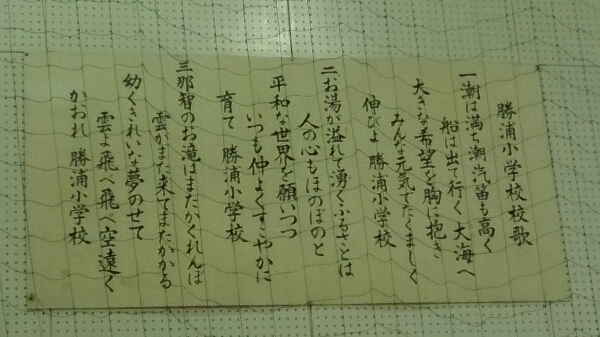 勝浦小学校校歌
一潮は満ち潮汽笛も高く
船は出て行く大海へ
大きな希望を胸に抱き
みんな元気でたくましく
伸びよ 勝浦小学校
二お湯が溢れて湧くふるさとは
人の心もほのぼのと
平和な世界を願いつつ
いつも仲よくすこやかに
育て 勝浦小学校
三那智のお滝はまたかくれんぼ
雲がまた来てまたかかる
幼くきれいな夢のせて
雲よ飛べ飛べ空遠く
かおれ 勝浦小学校